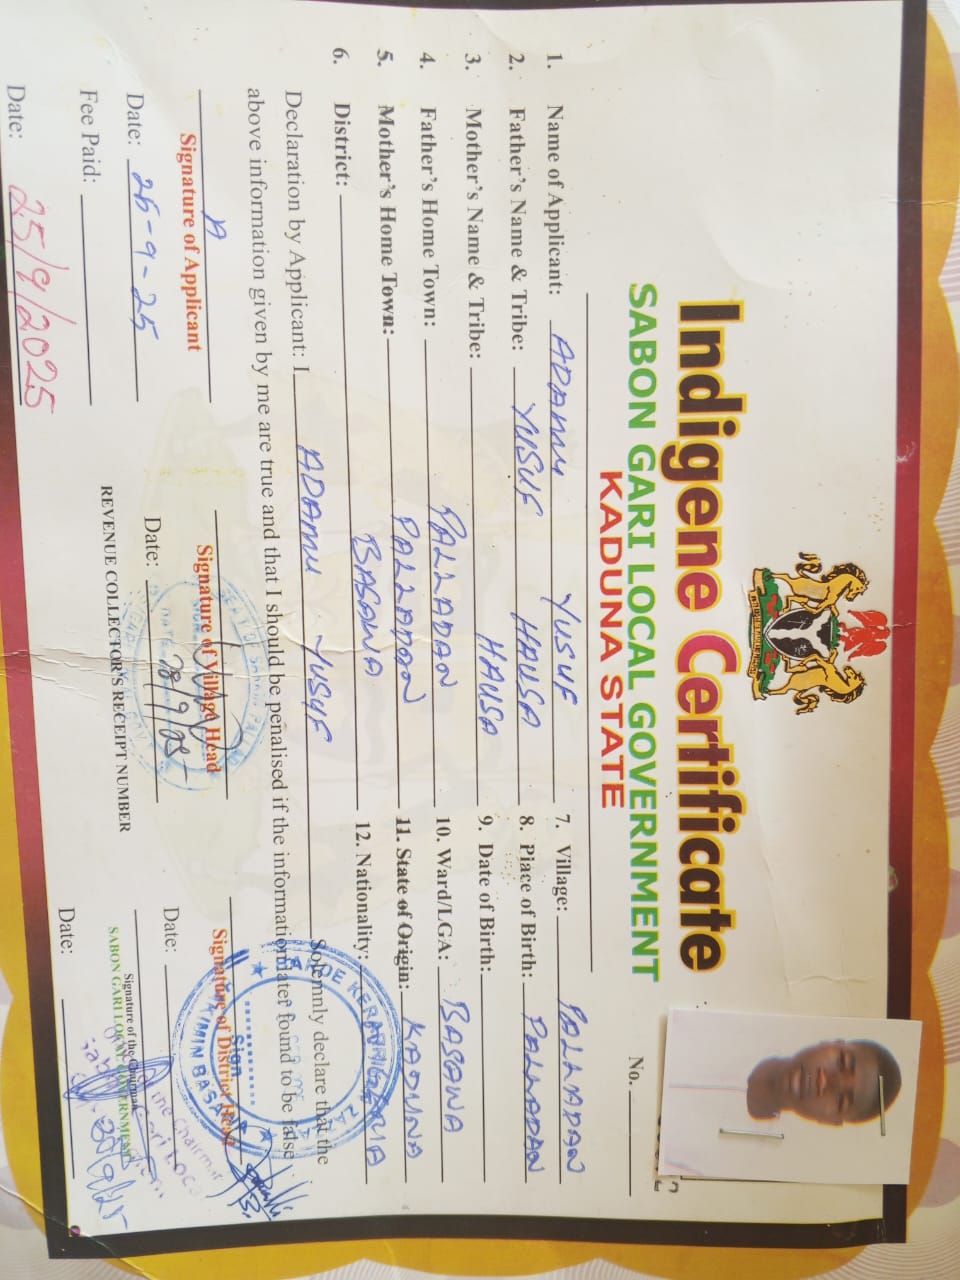 Indigene Certificate
SABON GARI LOCAL GOVERNMENT
KADUNA STATE
No.
1. Name of Applicant: ADAMU YUSUF
2. Father's Name & Tribe: YUSUF HAUSA
3. Mother's Name & Tribe: HAUSA
4. Father's Home Town: PALLADAN
5. Mother's Home Town: PALLADAN
6. District: BASAWA
7. Village: PALLADAN
8. Place of Birth: PALLADAN
9. Date of Birth:
10. Ward/LGA: BASAWA
11. State of Origin: KADUNA
12. Nationality:
Declaration by Applicant: I ADAMU YUSUF Solemnly declare that the
above information given by me are true and that I should be penalised if the information later found to be false
A
Signature of Applicant
Date: 26-9-25
Fee Paid:
Date: 25/9/2025
Signature of Village Head
Date: 28/9/25
REVENUE COLLECTOR'S RECEIPT NUMBER
Signature of District Head
Sign
Date:
Signature of the Chairman
SABON GARI LOCAL GOVERNMENT
Date: